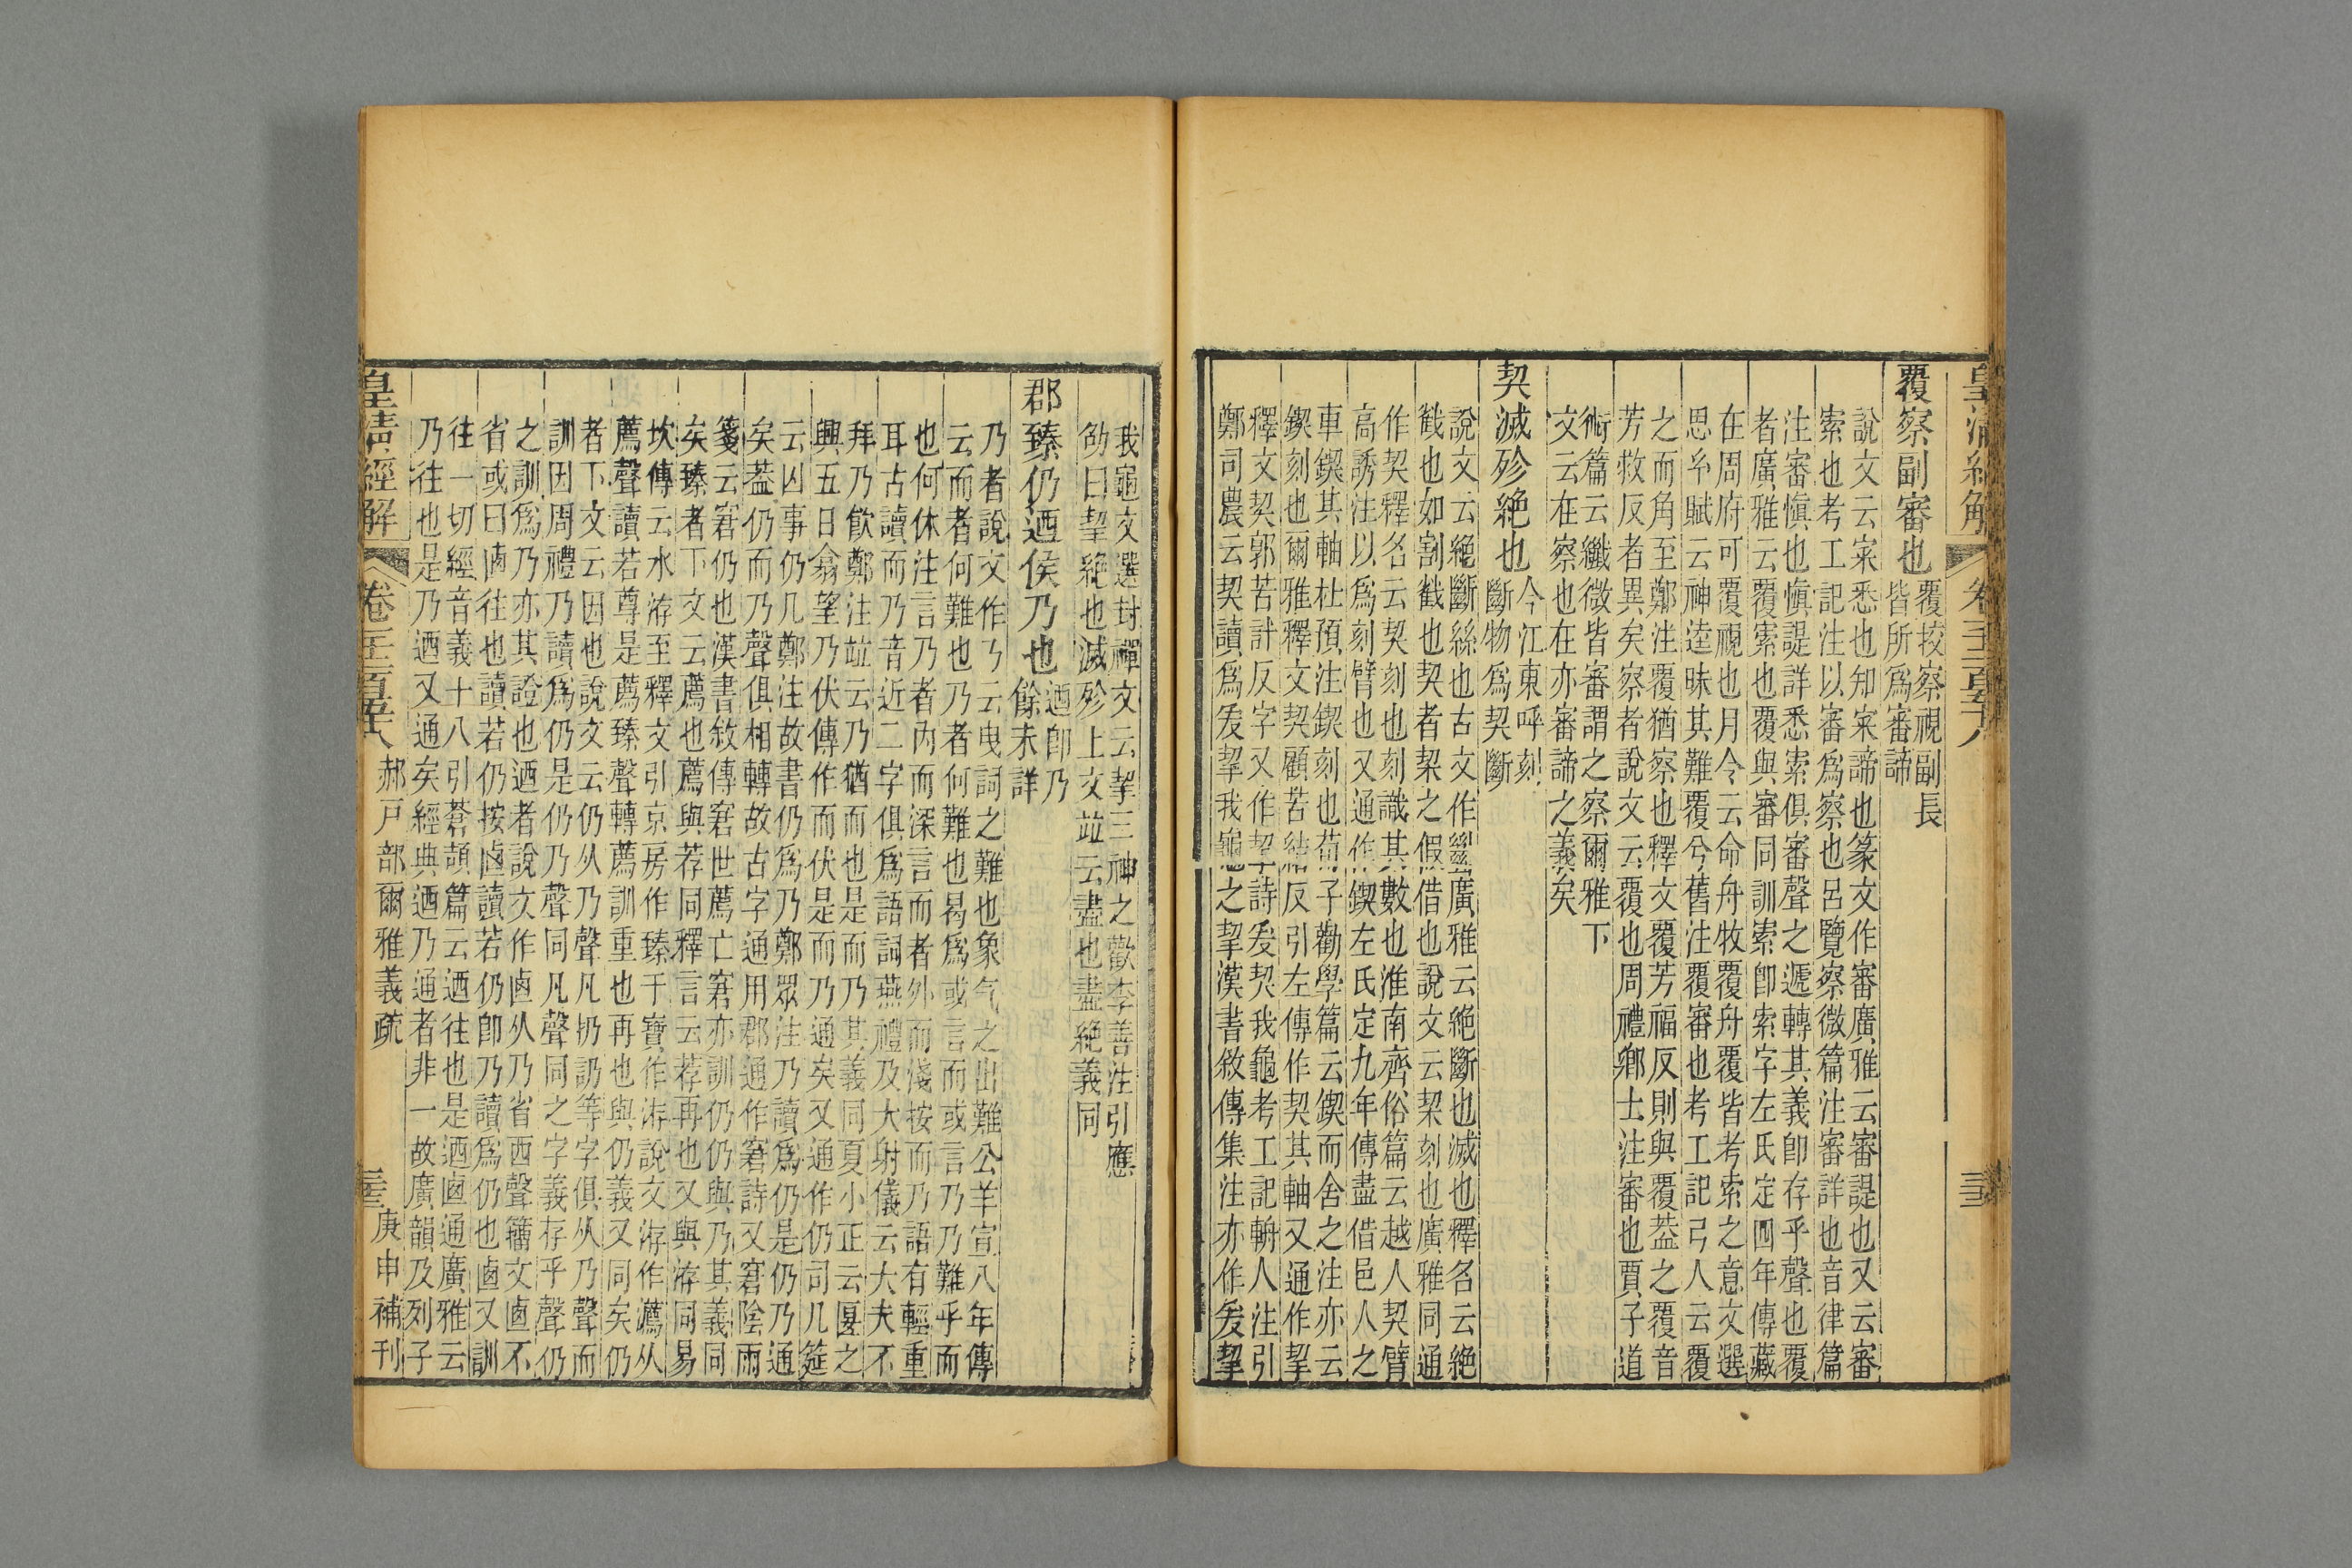 覆察副審也
覆挍察視副長
皆所爲審諦
說文云宷悉也知宷諦也篆文作審廣雅云審諟也又云審
索也考工記注以審爲察也呂覽察微篇注審詳也音律篇
注審愼也愼諟詳悉索俱審聲之遞轉其義卽存乎聲也覆
者廣雅云覆索也覆與審同訓索卽索字左氏定四年傳藏
在周府可覆視也月令云命舟牧覆舟覆皆考索之意文選
思𤣥賦云神逵昧其難覆兮舊注覆審也考工記弓人云覆
之而角至鄭注覆猶察也釋文覆芳福反則與覆葢之覆音
芳救反者異矣察者說文云覆也周禮鄉士注審也賈子道
術篇云纖微皆審謂之察爾雅下
文云在察也在亦審諦之義矣
契滅殄絶也
今江東呼刻
斷物爲契斷
說文云絶斷絲也古文作㡭廣雅云絶斷也滅也釋名云絶
截也如割截也契者栔之假借也說文云栔刻也廣雅同通
作契釋名云契刻也刻識其數也淮南齊俗篇云越人契臂
高誘注以爲刻臂也又通作鍥左氏定九年傳盡借邑人之
車鍥其軸杜預注鍥刻也荀子勸學篇云鍥而舍之注亦云
鍥刻也爾雅釋文契顧苦結反引左傳作契其軸又通作挈
釋文契郭苦計反字又作挈詩爰契我龜考工記輈人注引
鄭司農云契讀爲爰挈我龜之挈漢書敘傳集注亦作爰挈
我龜文選封禪文云挈三神之歡李善注引應
劭曰挈絶也滅殄上文竝云盡也盡絶義同
郡臻仍迺侯乃也
迺卽乃
餘未詳
乃者說文作乃云曳詞之難也象气之出難公羊宣八年傳
云而者何難也乃者何難也曷爲或言而或言乃乃難乎而
也何休注言乃者內而深言而者外而淺按而乃語有輕重
耳古讀而乃音近二字俱爲語詞燕禮及大射儀云大夫不
拜乃飮鄭注竝云乃猶而也是而乃其義同夏小正云匽之
興五日翕望乃伏傳作而伏是而乃通矣又通作仍司几筵
云凶事仍几鄭注故書仍爲乃鄭眾注乃讀爲仍是仍乃通
矣葢仍而乃聲俱相轉故古字通用郡通作窘詩又窘陰雨
箋云窘仍也漢書敘傳窘世薦亡窘亦訓仍仍與乃其義同
矣臻者下文云薦也薦與荐同釋言云荐再也又與洊同易
坎傳云水洊至釋文引京房作臻干寶作洊說文洊作瀳从
薦聲讀若尊是薦臻聲轉薦訓重也再也與仍義又同矣仍
者下文云因也說文云仍从乃聲凡扔訒等字俱从乃聲而
訓因周禮乃讀爲仍是仍乃聲同凡聲同之字義存乎聲仍
之訓爲乃亦其證也迺者說文作卤从乃省西聲籒文卤不
省或曰卤往也讀若仍按卤讀若仍卽乃讀爲仍也卤又訓
往一切經音義十八引蒼頡篇云迺往也是迺卤通廣雅云
乃往也是乃迺又通矣經典迺乃通者非一故廣韻及列子
皇清經解
卷千二百五十八
郝戸部爾雅義疏
三三
庚申補刊